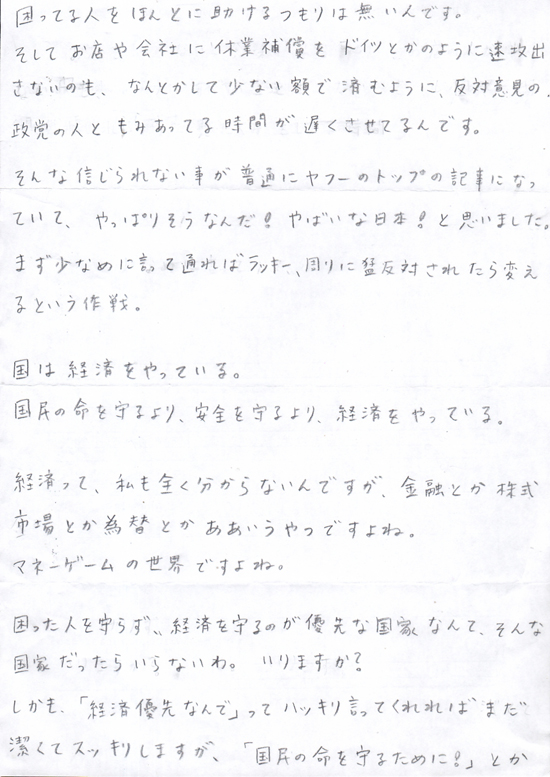 困ってる人をほんとに助けるつもりは無いんです。
そしてお店や会社に休業補償をドイツとかのように速攻出
さないのも、なんとかして少ない額で済むように、反対意見の
政党の人ともみあってる時間が遅くさせてるんです。
そんな信じられない事が普通にヤフーのトップの記事になっ
ていて、やっぱりそうなんだ!やばいな日本!と思いました。
まず少なめに言って通ればラッキー、周りに猛反対されたら変え
るという作戦。
国は経済をやっている。
国民の命を守るより、安全を守るより、経済をやっている。
経済って、私も全く分からないんですが、金融とか株式
市場とか為替とかああいうやつですよね。
マネーゲームの世界ですよね。
困った人を守らず、経済を守るのが優先な国家なんて、そんな
国家だったらいらないわ。いりますか?
しかも、「経済優先なんで」ってハッキリ言ってくれればまだ
潔くてスッキリしますが、「国民の命を守るために!」とか